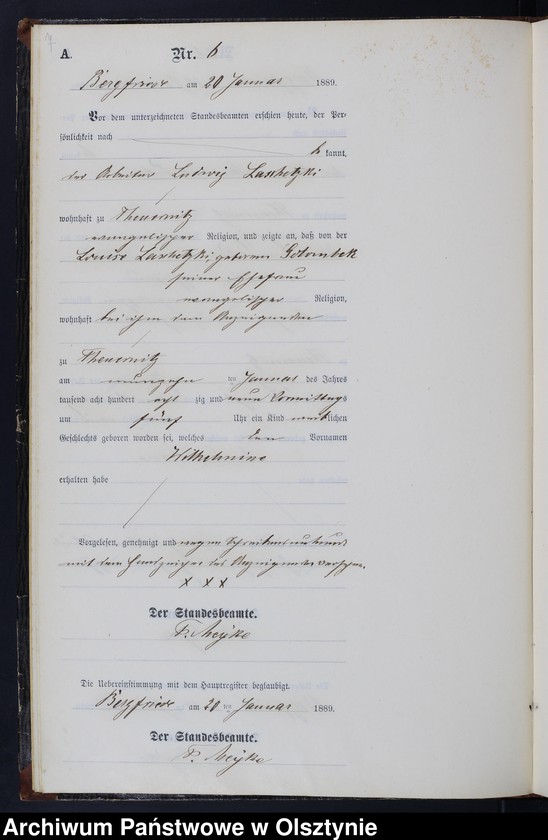 7
A.
Nr. 6
Bergfriede am 20 Januar 1889.
Vor dem unterzeichneten Standesbeamten erschien heute, der Per-
sönlichkeit nach
kannt,
der Arbeiter Ludwig
wohnhaft zu Theuernitz
evangelischer Religion, und zeigte an, daß von der
Louise geborenen
seiner Ehefrau
evangelischer Religion,
wohnhaft bei ihm dem Anzeigenden
zu Theuernitz
am neunzehn ten Januar des Jahres
tausend acht hundert acht zig und neun Vormittags
um fünf Uhr ein Kind weiblichen
Geschlechts geboren worden sei, welches den Vornamen
Wilhelmine
erhalten habe
Vorgelesen, genehmigt und wegen
mit dem Handzeichen des Anzeigenden versehen.
x x x
Der Standesbeamte.
Die Uebereinstimmung mit dem Hauptregister beglaubigt.
Bergfriede am 20 ten Januar 1889.
Der Standesbeamte.
Archiwum Państwowe w Olsztynie